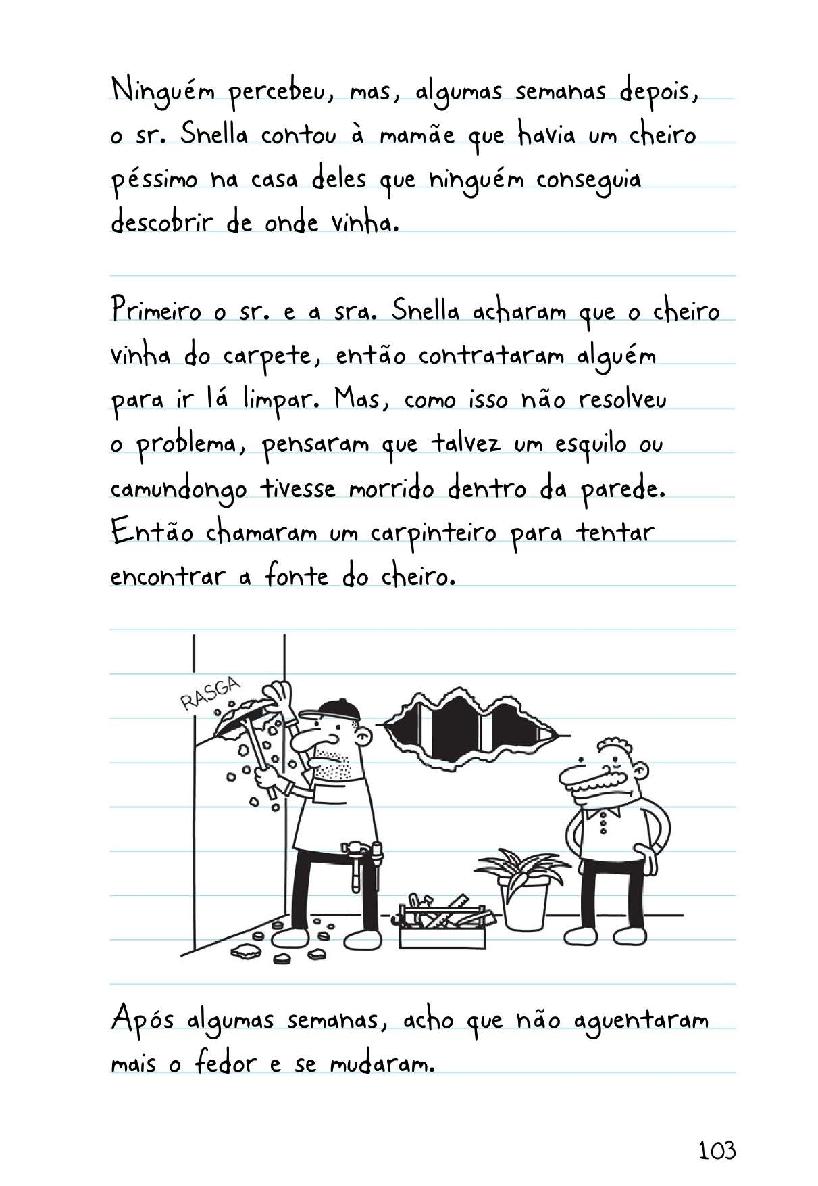 Ninguém percebeu, mas, algumas semanas depois,
o sr. Snella contou à mamãe que havia um cheiro
péssimo na casa deles que ninguém conseguia
descobrir de onde vinha.
Primeiro o sr. e a sra. Snella acharam que o cheiro
vinha do carpete, então contrataram alguém
para ir lá limpar. Mas, como isso não resolveu
o problema, pensaram que talvez um esquilo ou
camundongo tivesse morrido dentro da parede.
Então chamaram um carpinteiro para tentar
encontrar a fonte do cheiro.
RASGA
Após algumas semanas, acho que não aguentaram
mais o fedor e se mudaram.
103